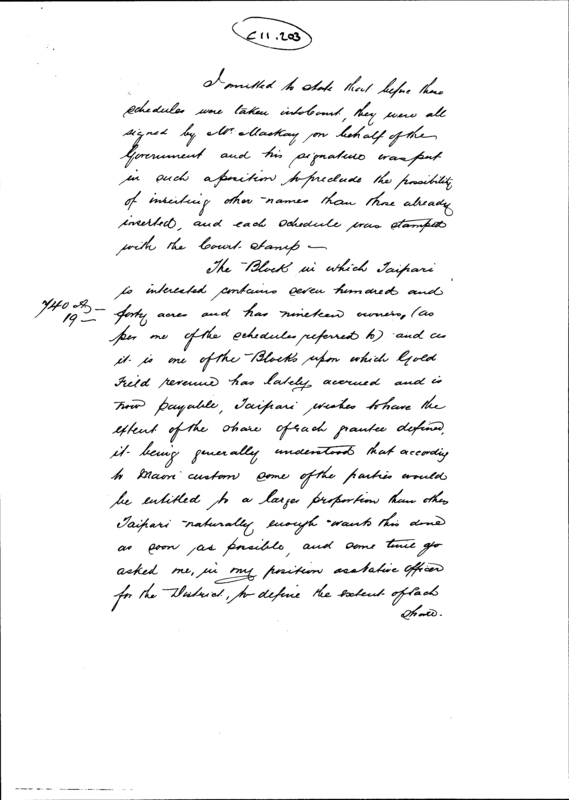 C11.203
I omitted to state that before these
schedules were taken into Court, they were all
signed by Mr. Mackay on behalf of the
Government and his signature was put
in such a position to preclude the possibility
of inserting other names than those already
inserted, and each schedule was stamped
with the Court stamp —
The Block in which Taipari
is interested contains seven hundred and
740 A —
19 —
forty acres and has nineteen owners, (as
per one of the schedules referred to) and as
it is one of the Blocks upon which Gold
Field revenue has lately accrued and is
now payable, Taipari wishes to have the
extent of the share of each grantee defined,
it being generally understood that according
to Maori custom some of the parties would
be entitled to a larger proportion than others
Taipari naturally enough wants this done
as soon as possible, and some time ago
asked me, in my position as Native Officer
for the District, to define the extent of each
share.